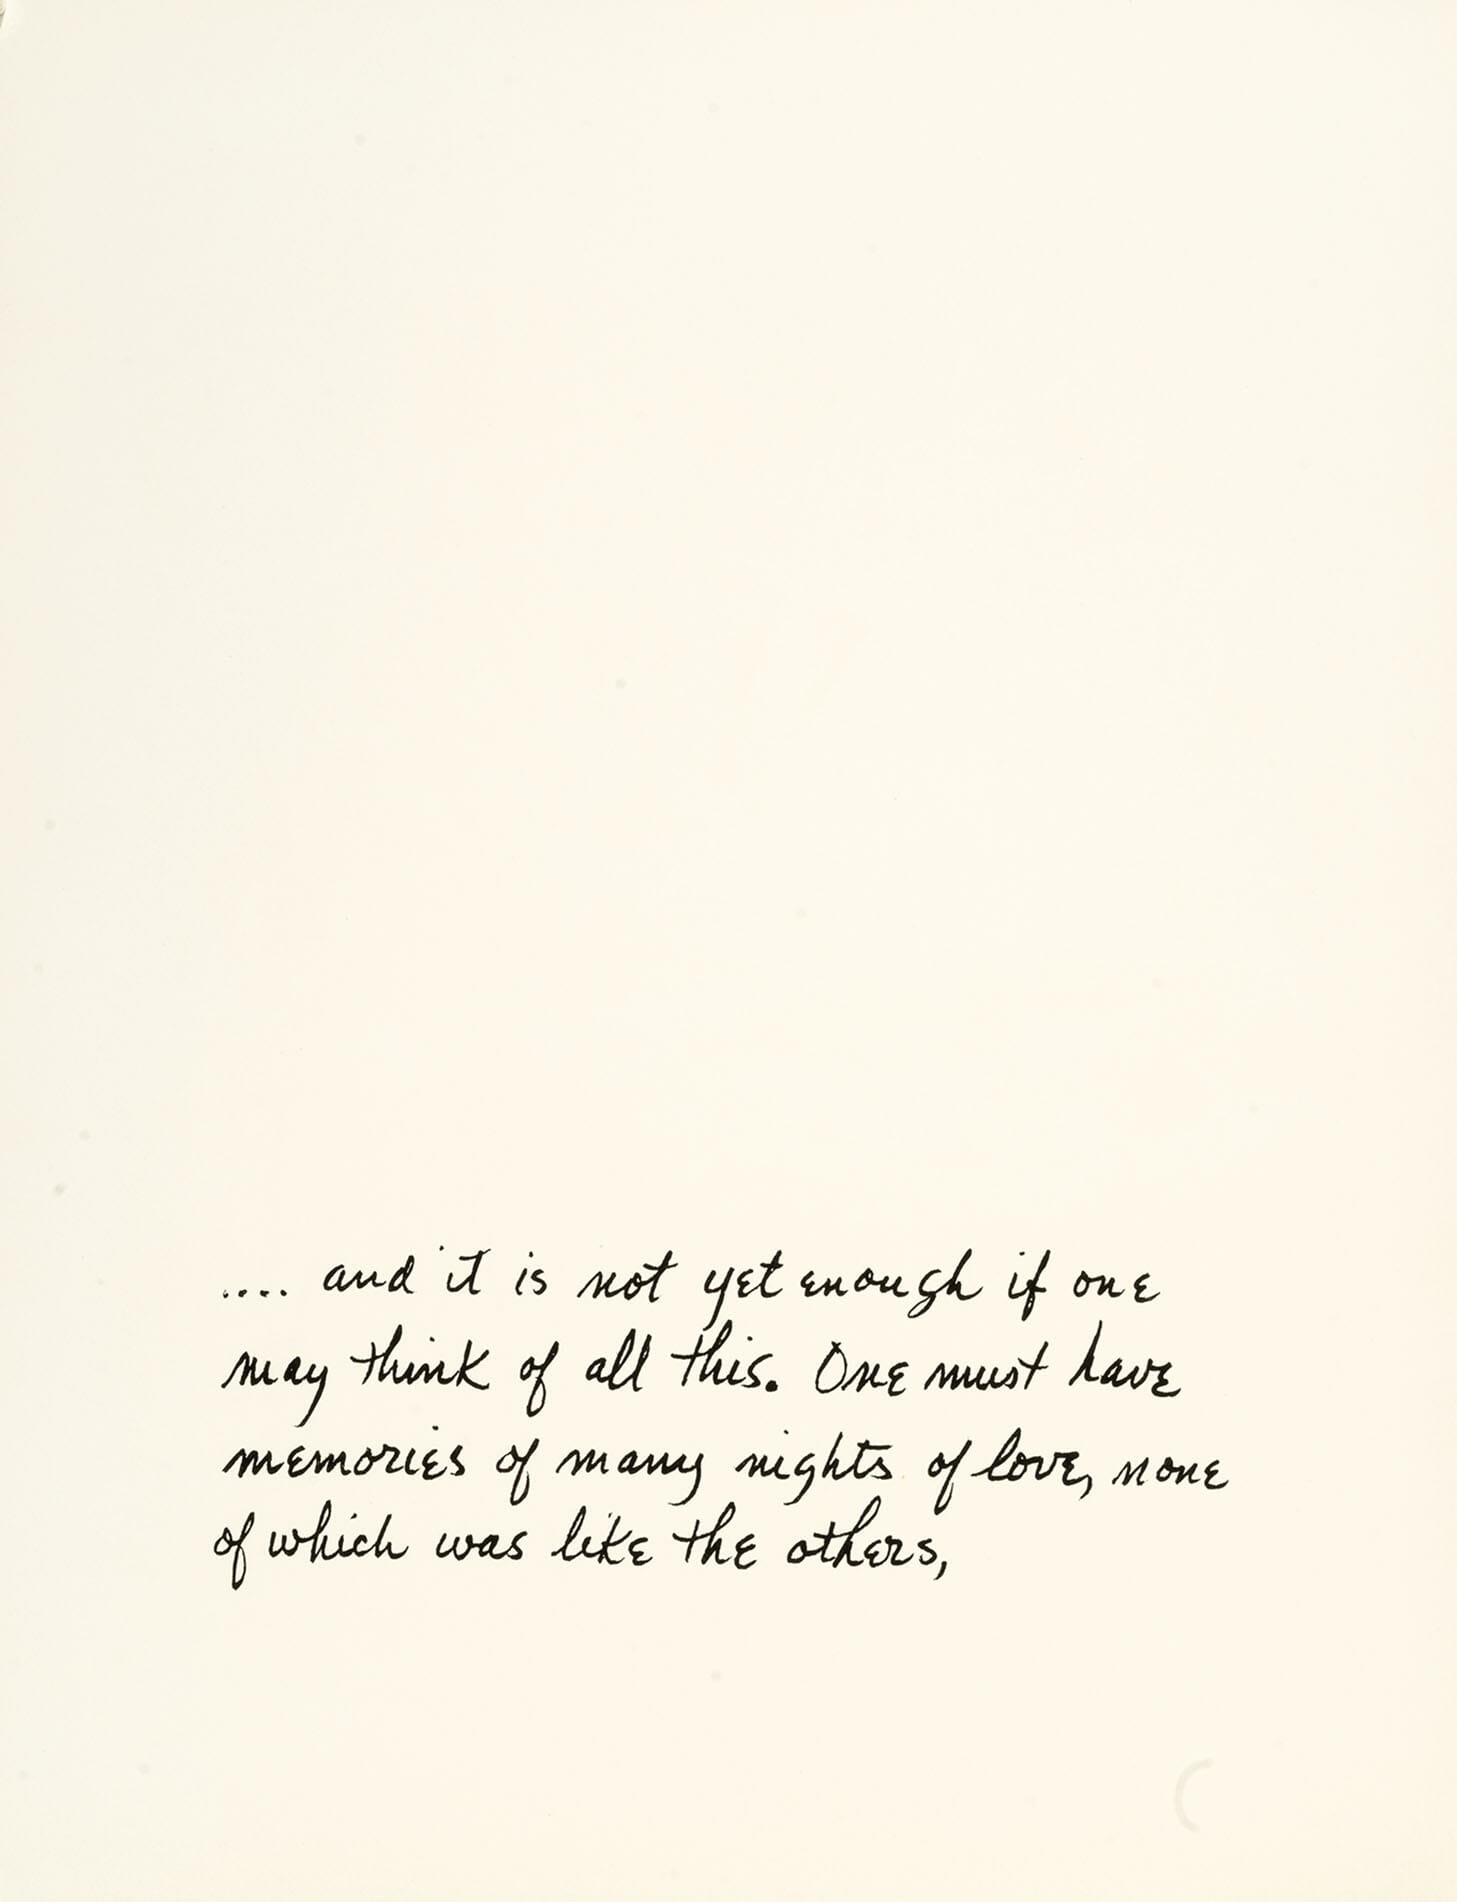 .... and it is not yet enough if one
may think of all this. One must have
memories of many nights of love, none
of which was like the others,